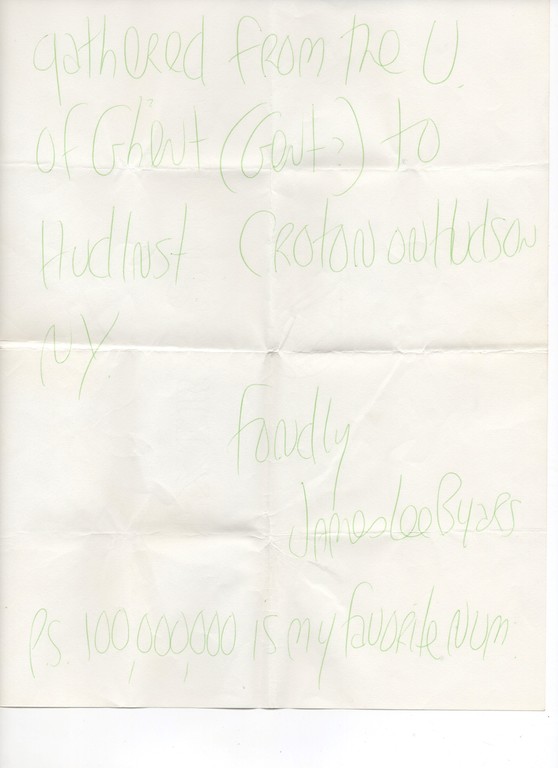 gathered from the U.
of Ghent (Gent?) to
HudInst Croton on Hudson
NY
fondly
James Lee Byars
Ps. 100,000,000 is my favorite num.